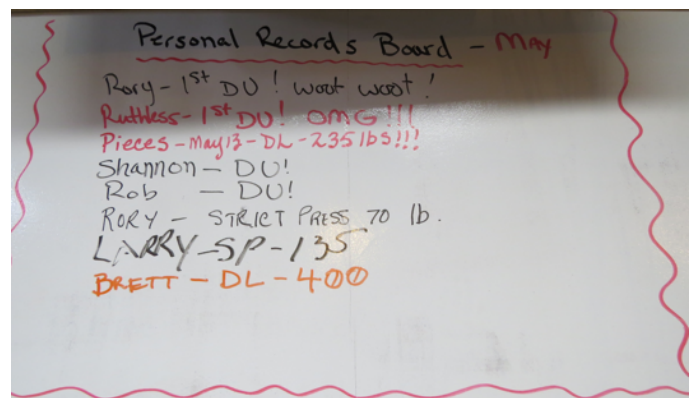 Personal Records Board - MAY
Rory - 1st DU! woot woot!
Ruthless - 1st DU! OMG!!!
Pieces - May 13 - DL - 235 lbs!!!
Shannon - DU!
Rob - DU!
RORY - STRICT PRESS 70 lb.
LARRY - SP - 135
BRETT - DL - 400